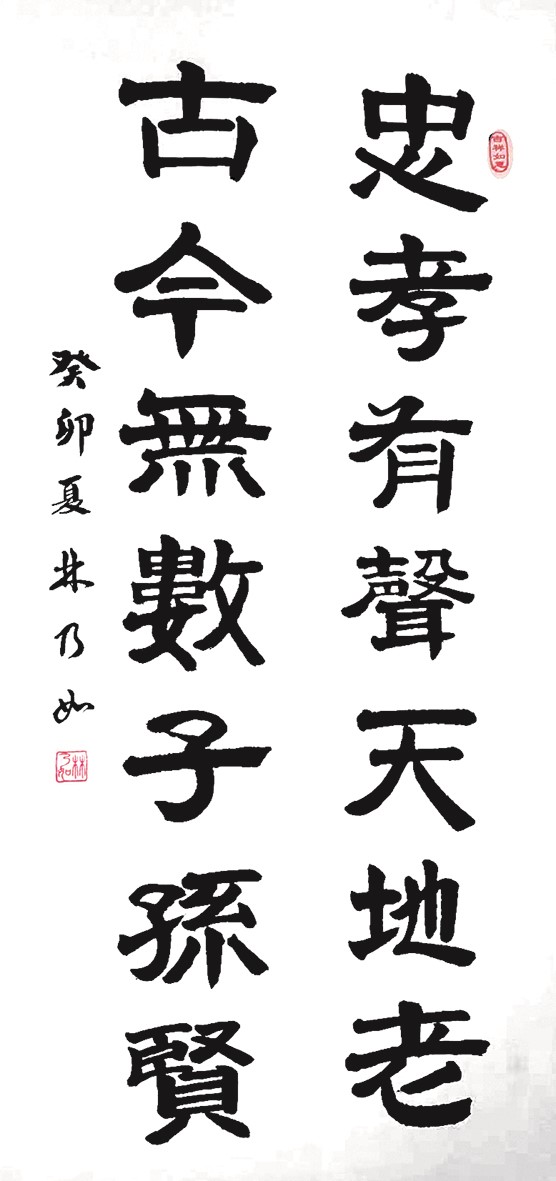 忠孝有聲天地老
古今無數子孫賢
癸卯夏林乃如
吉祥如意
林乃如